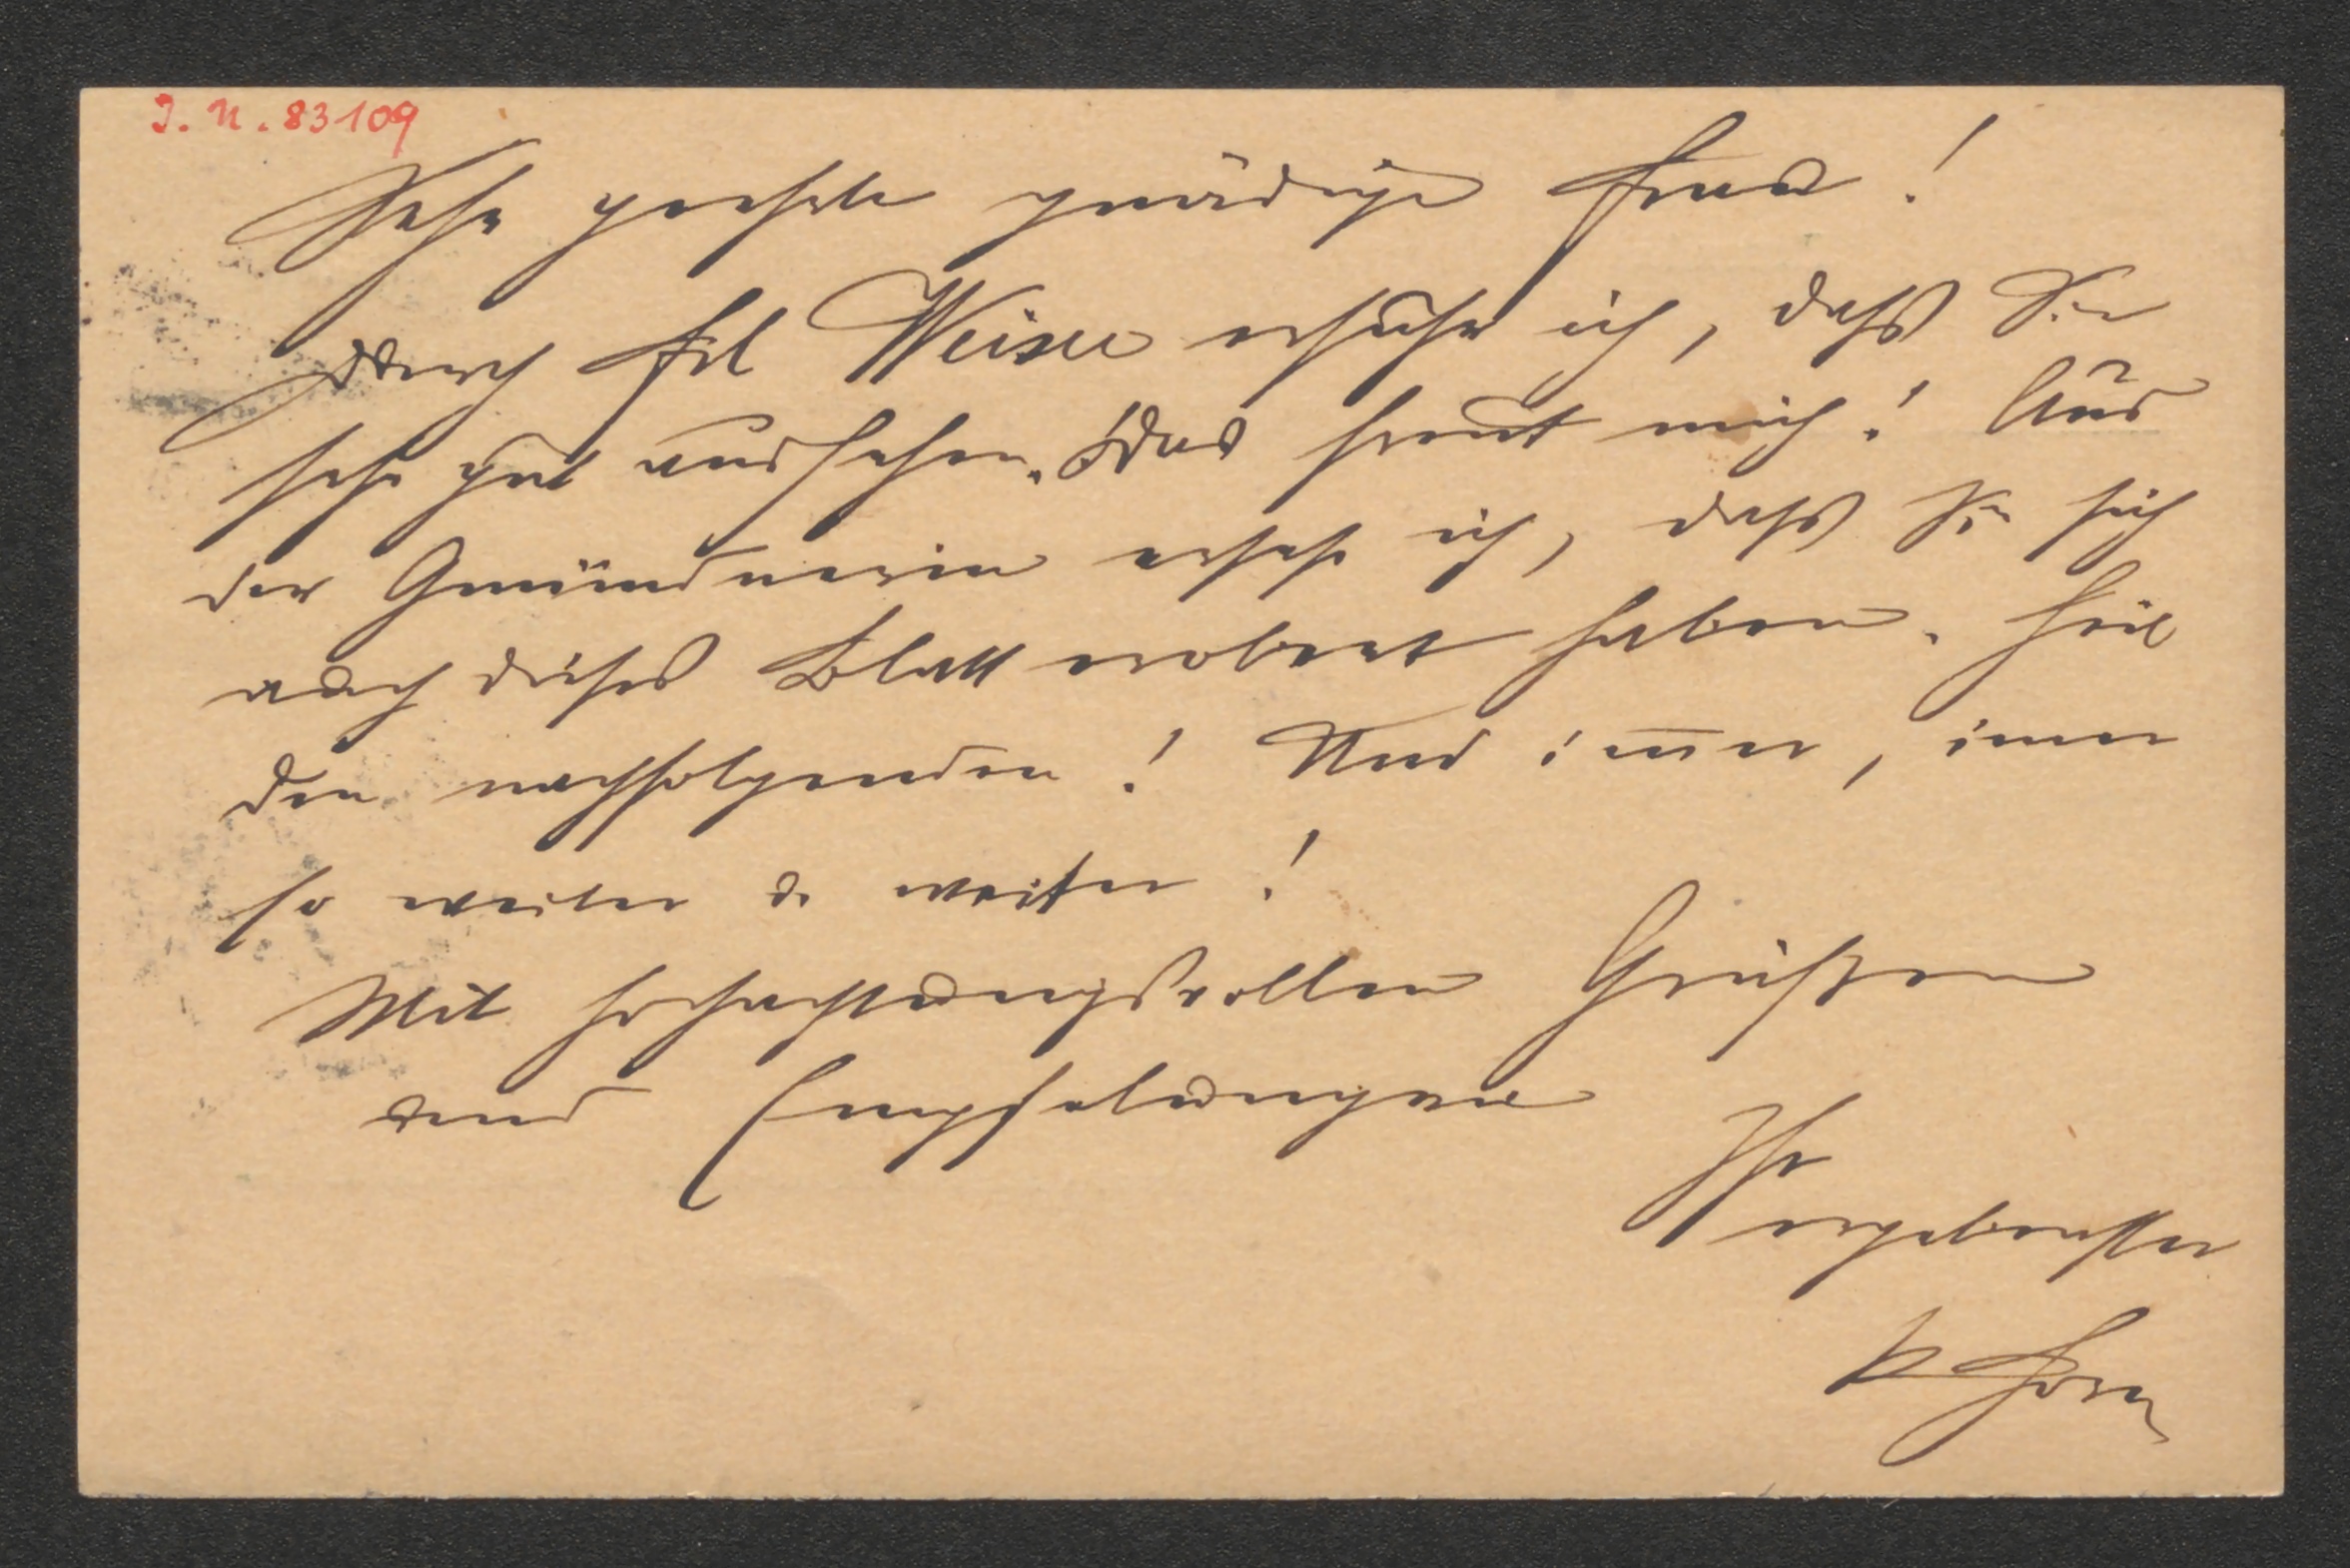 I. N. 83109
Sehr geehrte gnädige Frau!
Durch Frl Weisse erfuhr ich, daß Sie
sehr gut aussehen. Das freut mich! Aus
der Gmündnerin ersehe ich, daß Sie sich
auch dieses Blatt erobert haben. Heil
den nachfolgenden! Und im̅er, im̅er
so weiter u. weiter!
Mit hochachtungsvollen Grüßen
und Empfelungen
Ihr
ergebenster